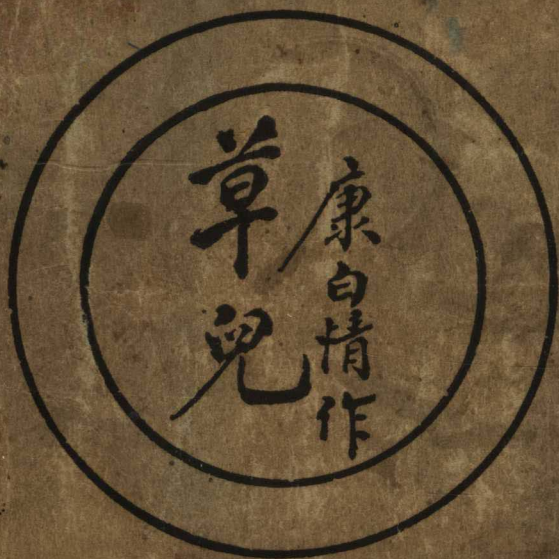 康白情作
草兒